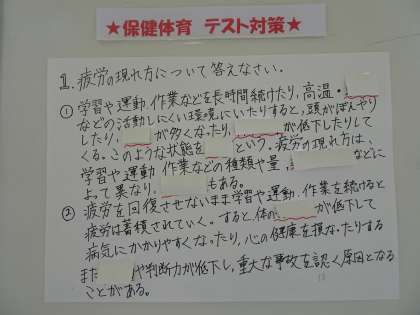 ★保健体育 テスト対策★
1. 疲労の現れ方について答えなさい.
① 学習や運動、作業などを長時間続けたり、高温・
などの活動しにくい環境にいたりすると、頭がぼんやり
したり、 が多くなったり、 が低下したりして
くる。このような状態を という。疲労の現れ方は、
学習や運動、作業などの種類や量、 などに
よって異なり、 もある。
② 疲労を回復させないまま学習や運動、作業を続けると
疲労は蓄積されていく。すると、体の が低下して
病気にかかりやすくなったり、心の健康を損なったりする
また や判断力が低下し、重大な事故を認く原因となる
ことがある。